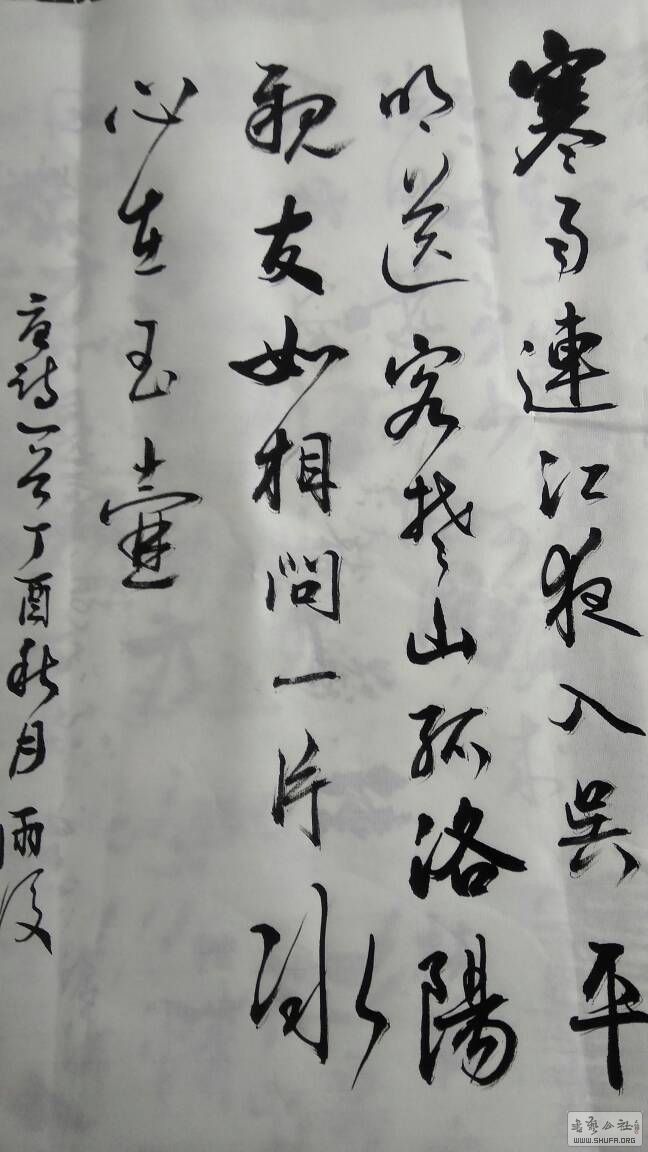 寒雨連江夜入吳平
明送客楚山孤洛陽
親友如相問一片冰
心在玉壺
唐詩一首丁酉秋月雨後
书艺公社
WWW.SHUFA.ORG